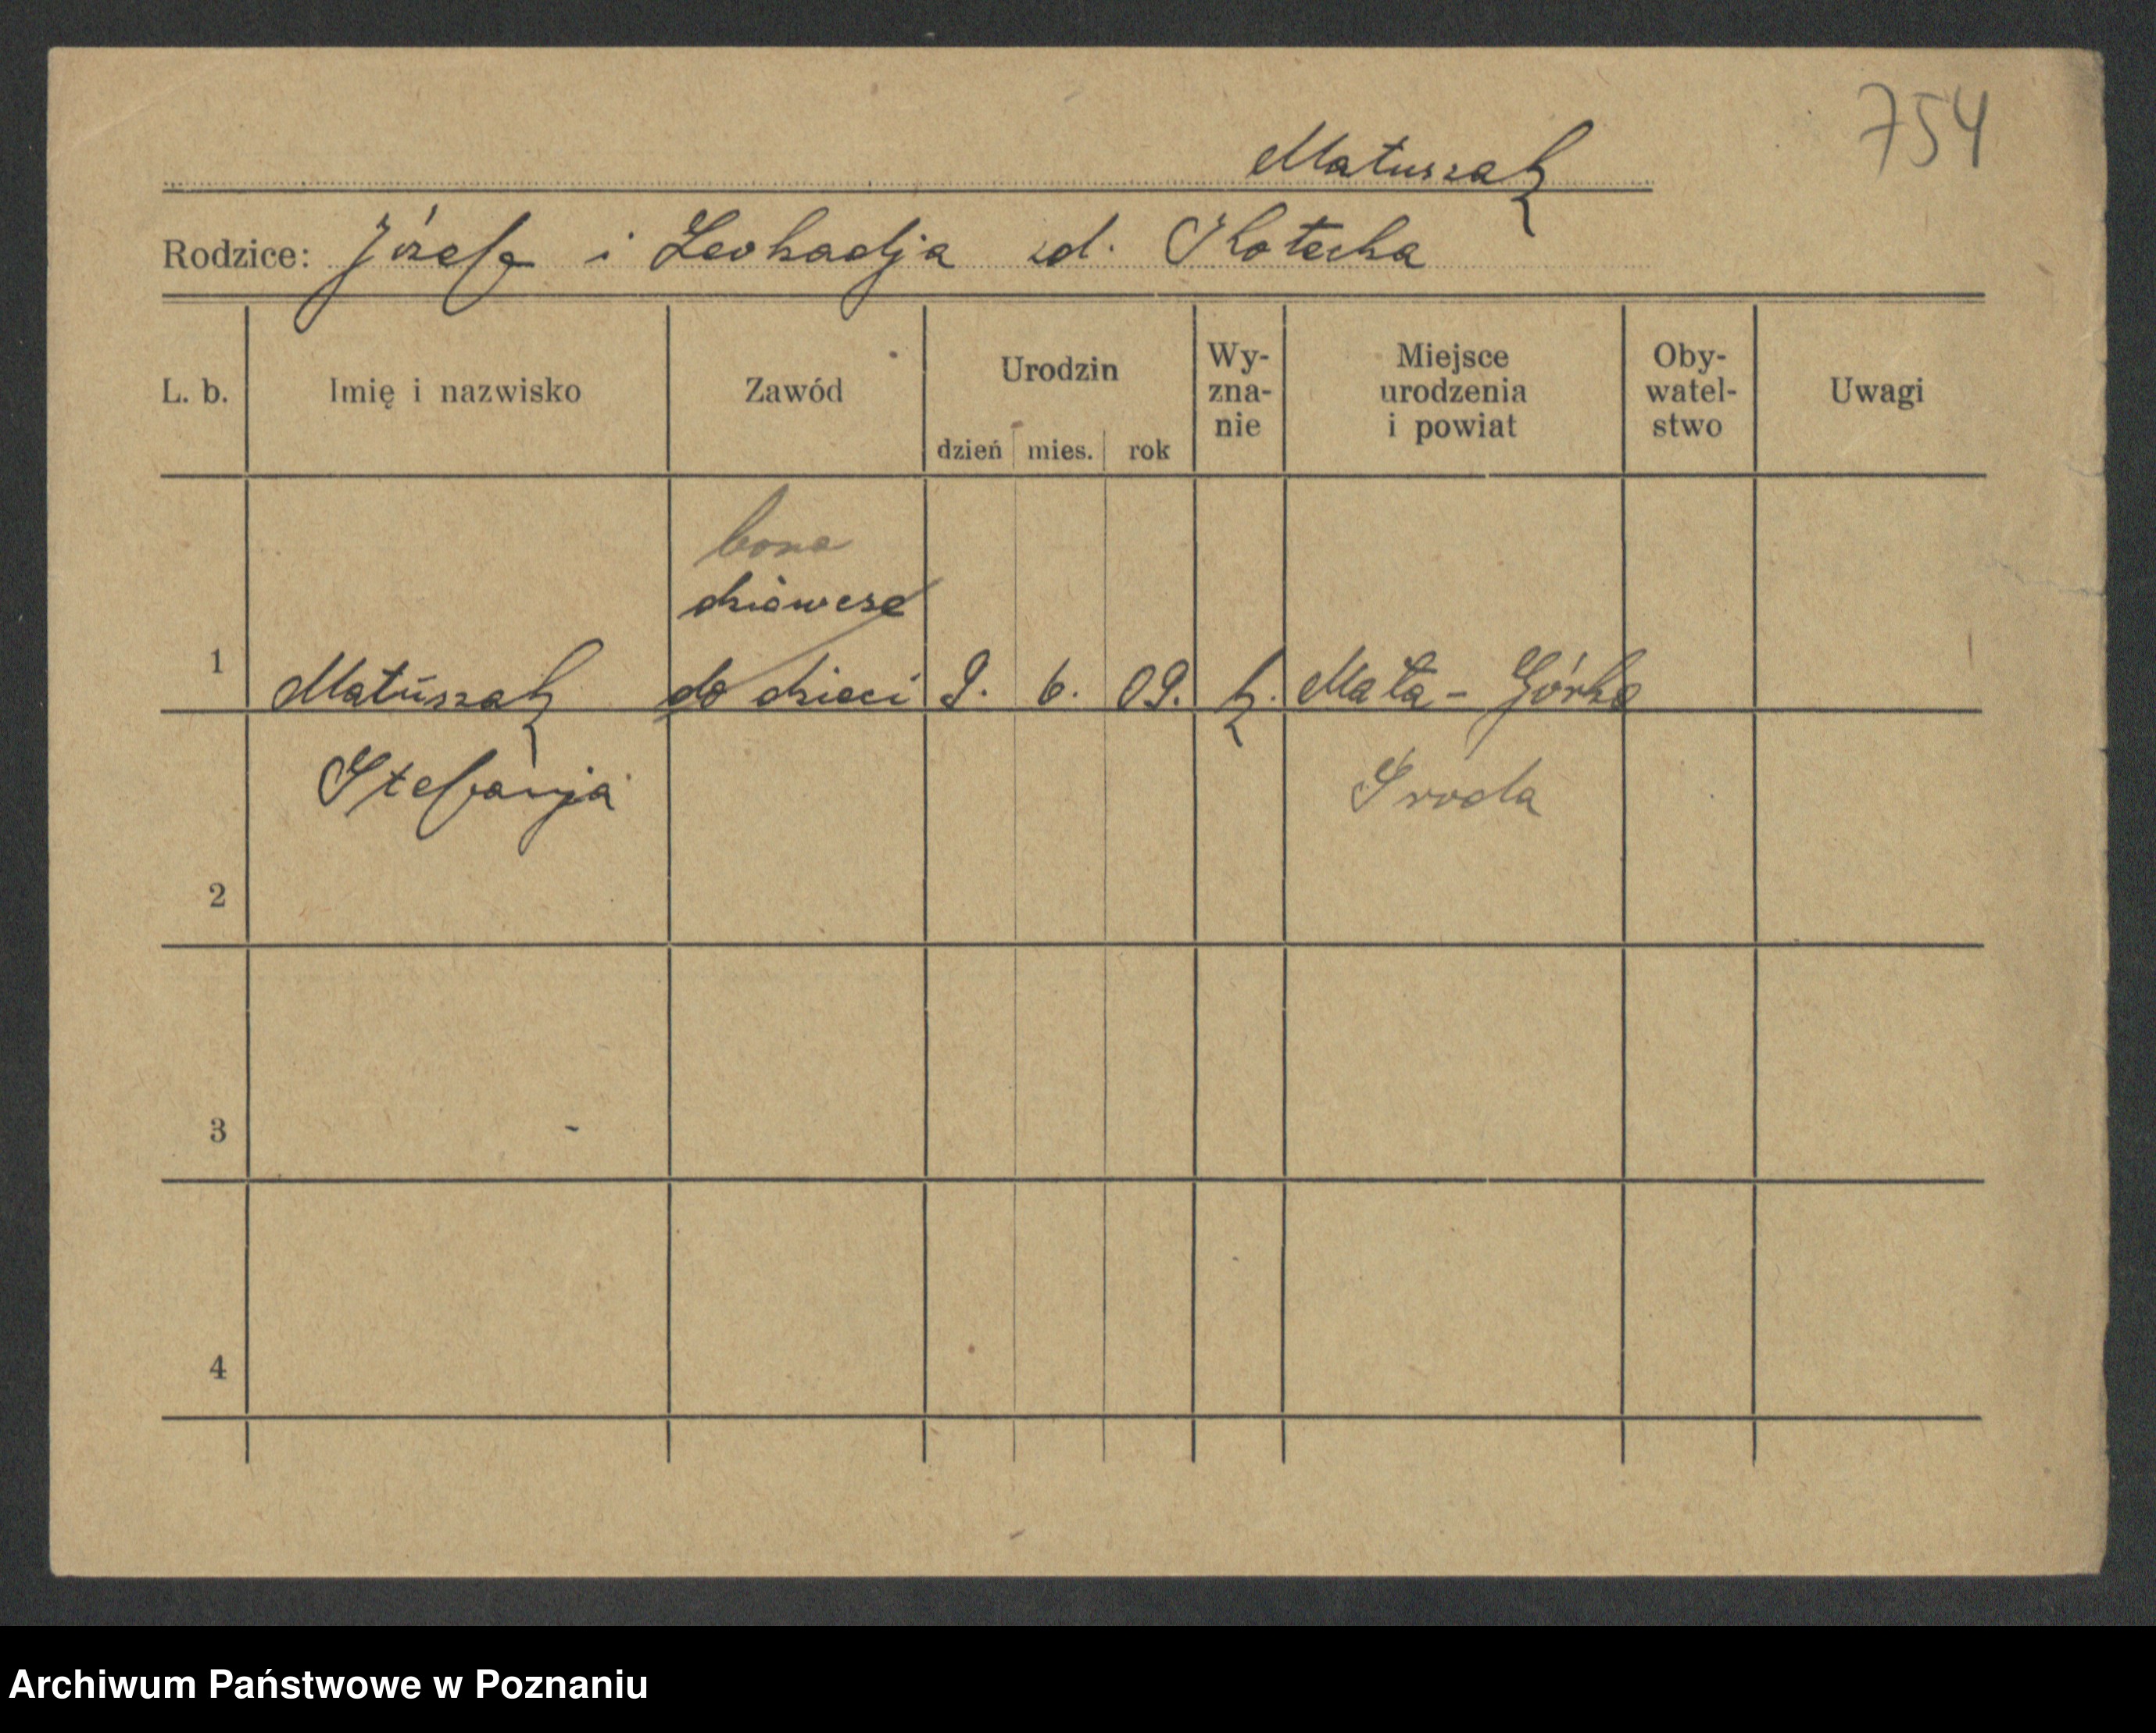 754
Matuszak
Rodzice: Józef i Leokadja zd.
L. b. Imię i nazwisko Zawód Urodzin dzień mies. rok Wy-zna-nie Miejsce urodzenia i powiat Oby-watel-stwo Uwagi
bona
dziewcze
1 Matuszak do dzieci 9. 6. 09. k. Mała - Górka
Stefanja Środa
2
3
4
Archiwum Państwowe w Poznaniu